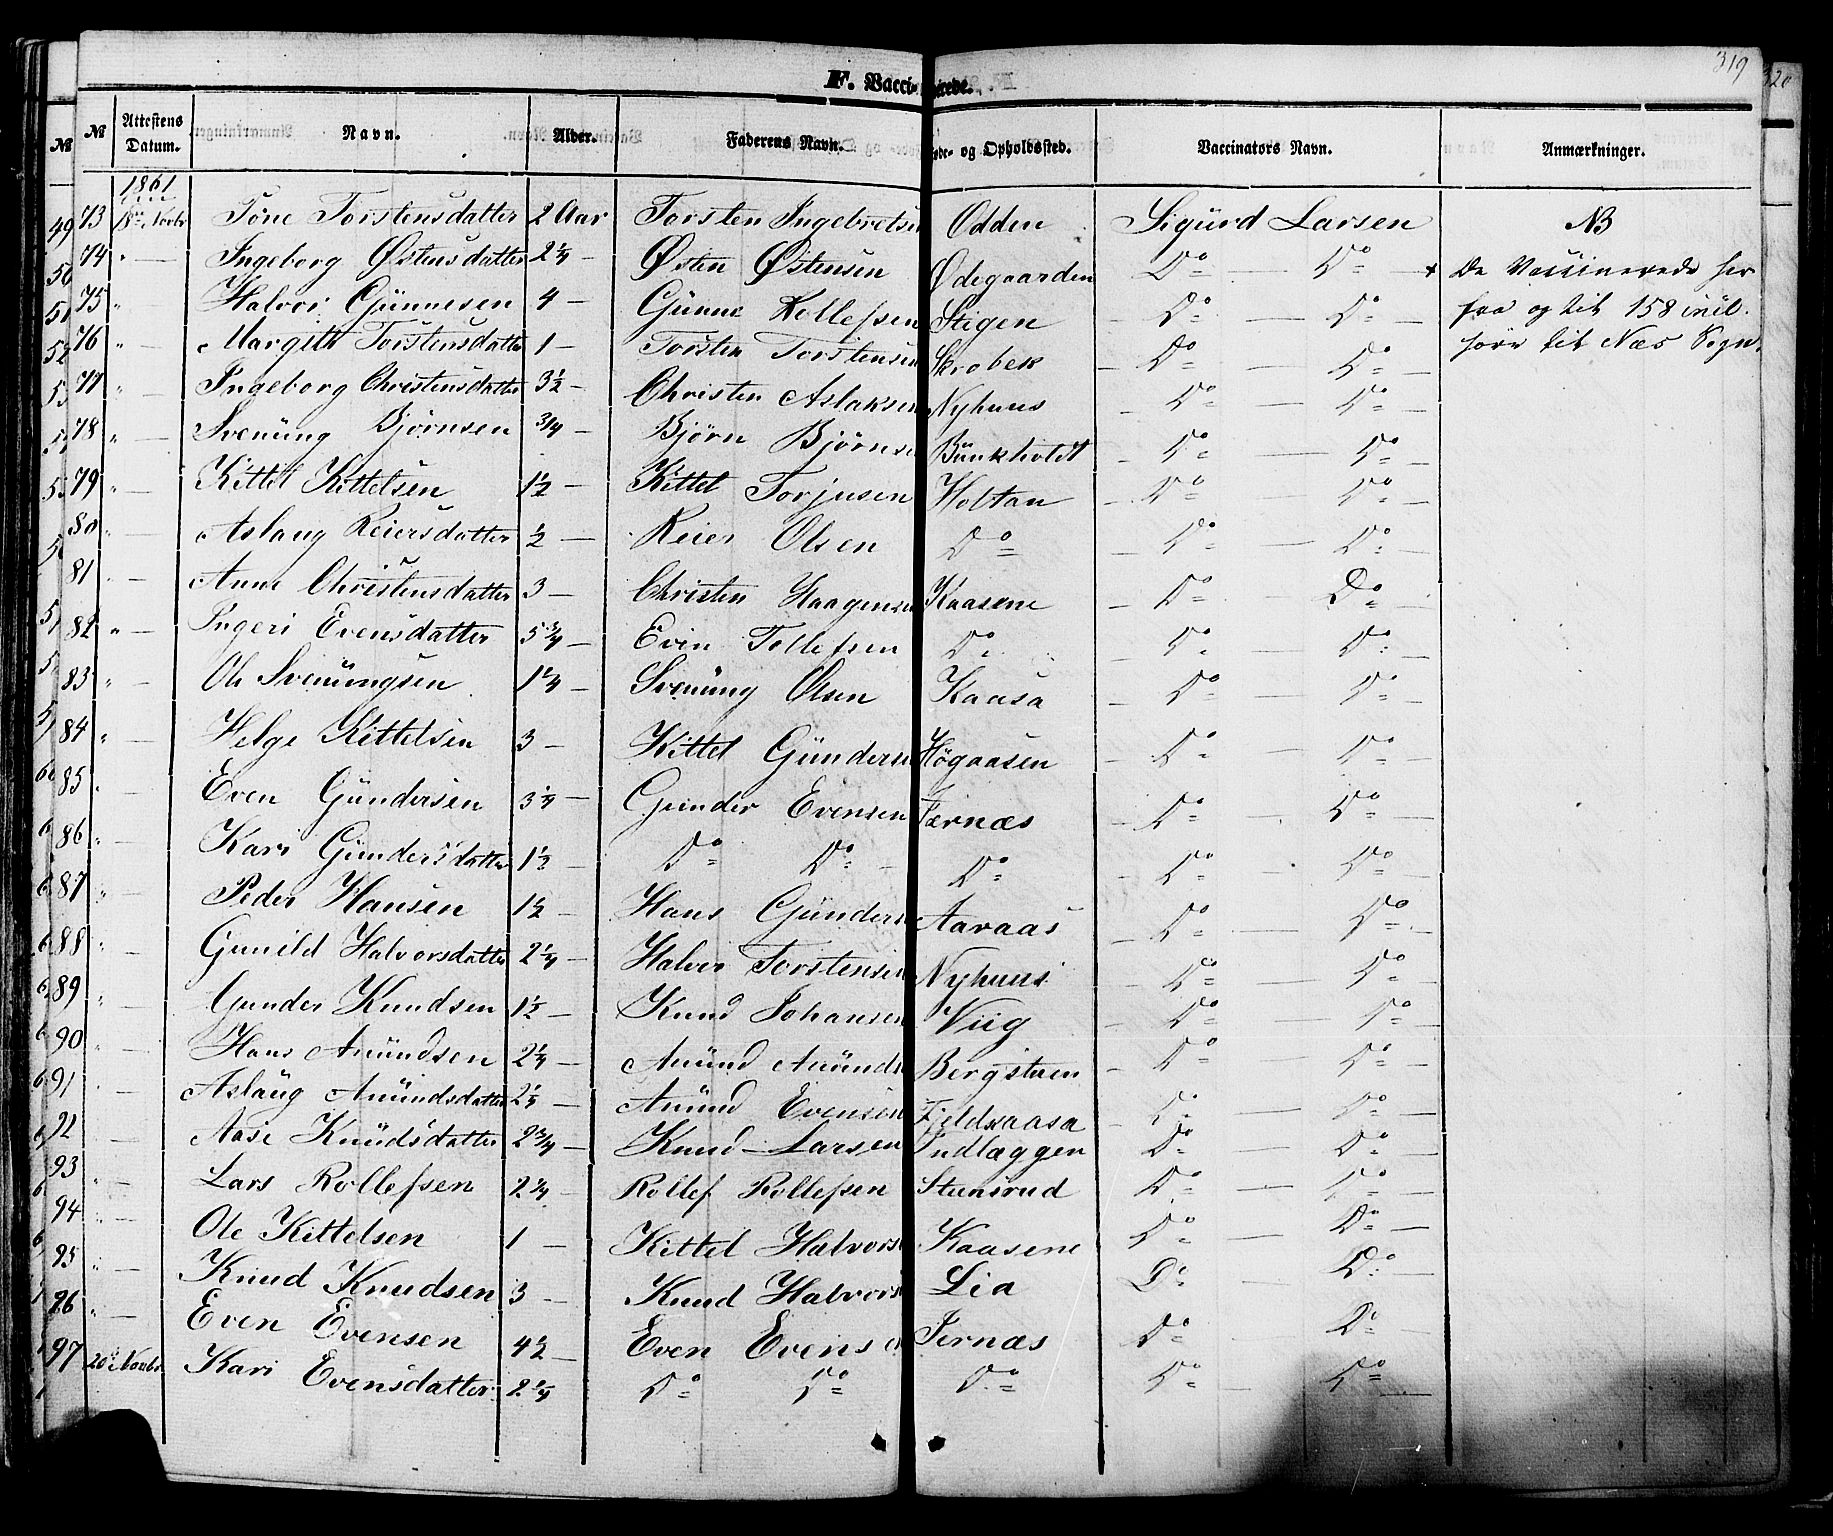 319
320
F. Vacci- nerede.
№ Attestens Datum. Navn. Alder. Faderens Navn. Føde- og Opholdssted. Vaccinators Navn. Anmærkninger.
1861
73 18de Novbr Tone Torstensdatter 2 Aar Torsten Ingebretsen Odden Sigurd Larsen NB
74 " — Ingeborg Østensdatter 2¼ — Østen Østensen Ødegaarden Do — Do De Vassinerede her
75 " Halvor Gunnesen 4 — Gunne Rollefsen Stigen — Do Do — fra og til 158 incl.
76 " — Margith Torstensdatter 1 — Torsten Torstensen Skrobek — Do — Do — høre til Næs Sogn.
77 " — Ingeborg Christensdatter 3½ — Christen Aslaksen Nyhuus — Do — Do —
78 " — Svenung Bjørnsen ¾ — Bjørn Bjørnsen Bunkholdt — Do — Do —
79 " — Kittel Kittelsen 1½ — Kittel Torjusen Holtan — Do — Do —
80 " — Aslaug Reiersdatter ½ — Reier Olsen Do — Do — Do —
81 " — Anne Christensdatter 3 — Christen Haagensen Kaasene — Do — Do —
82 " — Ingeri Evensdatter 5¾ — Even Tollefsen Do — Do — Do —
83 " — Ole Svenungsen 1¼ — Svenung Olsen Kaasa — Do — Do —
84 " — Helge Kittelsen 3 — Kittel Gundersen Høgaasen — Do — Do —
85 " — Even Gundersen 3¼ — Gunder Evensen Jernæs — Do — Do —
86 " — Kari Gundersdatter 1½ — Do Do — Do — Do — Do —
87 " — Peder Hansen 1½ — Hans Gunders Aaraas — Do — Do —
88 " — Gunild Halvorsdatter 2¼ — Halvor Torstensen Nyhuus — Do — Do —
89 " — Gunder Knudsen 1½ — Knud Johansen Viig — Do — Do —
90 " — Hans Amundsen 2¼ — Amund Amunds Bergstuen — Do — Do —
91 " — Aslaug Amundsdatter — Amund Evensen — Do — Do —
92 " — Aase Knudsdatter 2¾ — Knud Larsen Indlæggen Do — Do —
93 " — Lars Rollefsen 2¼ — Rollef Rollefsen Steensrud Do — Do —
94 " — Ole Kittelsen 1 — Kittel Halvors Kaasene Do — Do —
95 " — Knud Knudsen 3 — Knud Halvors Lia Do — Do —
96 " — Even Evensen 4½ — Even Evensen Jernæs Do — Do —
97 20de Novbr Kari Evensdatter Do Do Do Do — Do —